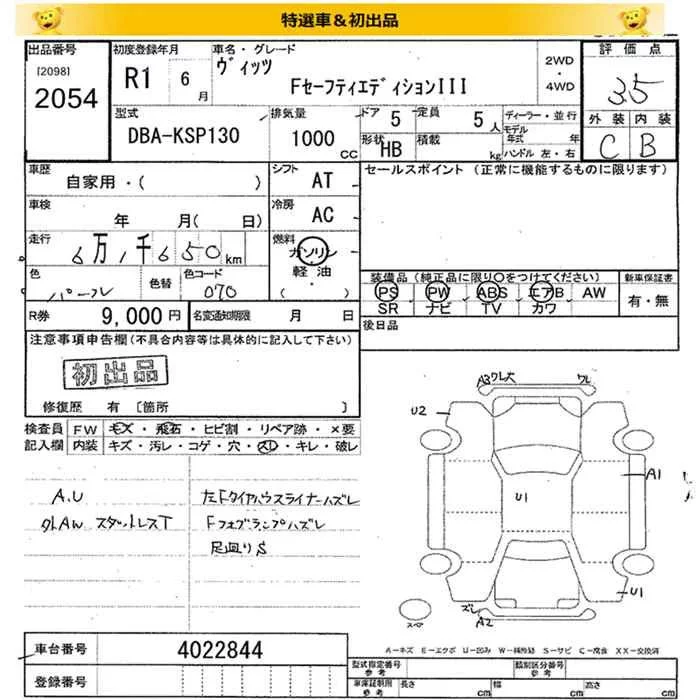 特選車＆初出品
出品番号
[2098]
2054
初度登録年月
R1 6月
車名・グレード
ヴィッツ
FセーフティエディションIII
2WD
・
4WD
評価点
3.5
外装 内装
C B
型式
DBA-KSP130
排気量
1000 CC
ドア 5
定員 5人
形状 HB
積載 kg
ディーラー・並行
モデル年式 年
ハンドル 左・右
車歴
自家用・( )
シフト AT
セールスポイント (正常に機能するものに限ります)
車検
年 月( 日)
冷房 AC
走行
6万1千650km
燃料
ガソリン
軽油
( ・ )
色
パープル
色替
色コード
070
装備品 (純正品に限り○をつけてください)
PS PW ABS エアB AW
SR ナビ TV カワ
新車保証書
有・無
R券 9,000円
名変通知期限 月 日
後日品
注意事項申告欄(不具合内容等は具体的に記入して下さい)
初出品
修復歴 有 [箇所 ]
検査員記入欄
FW キズ・飛石・ヒビ割・リペア跡・×要
内装 キズ・汚レ・コゲ・穴・スレ・キレ・破レ
A.U
外AW スタットレスT
左Fタイヤハウスライナーハズレ
Fフォグランプハズレ
足回りS
A3 ワレ大
ワレ
U2
U1
A1
U1
ズレ
A2
スペア
A－キズ E－エクボ U－凹み W－補修跡 S－サビ C－腐食 XX－交換済
車台番号 4022844
登録番号
型式指定番号 参考
類別区分番号 参考
車庫証明用 参考
長さ cm
幅 cm
高さ cm